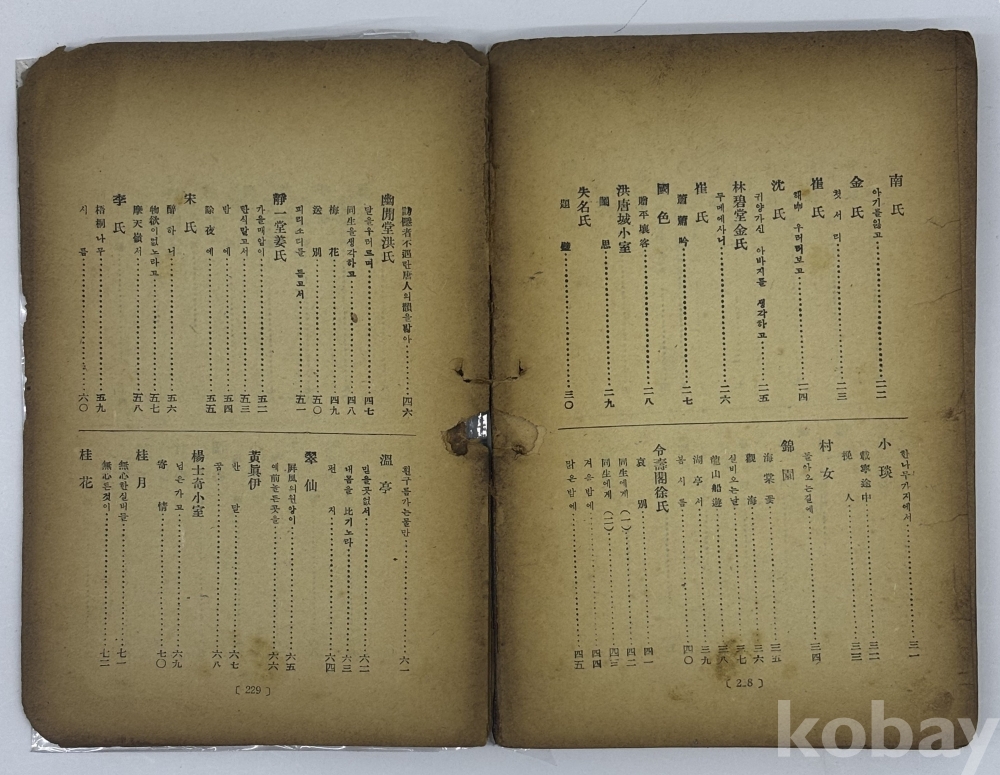 南氏
아기를잃고 二二
金氏
첫서리 二三
崔氏
二四
沈氏
귀양가신 아바지를 생각하고 二五
林碧堂金氏
두메에사니 二六
崔氏
蕭蕭吟 二七
國色
贈平壤客 二八
洪唐城小室
閨思 二九
失名氏
題壁 三〇
小琰
한나무가지에서 三一
載寧途中 三二
挽人 三三
村女
돌아오는길에 三四
錦園
海棠 三五
觀海 三六
실비오는날 三七
龍山船遊 三八
湖亭서 三九
봄시름 四〇
令壽閣徐氏
哀別 四一
同生에게 (一) 四二
同生에게 (二) 四三
겨울밤에 四四
맑은밤에 四五
( 2 8 )
訪隱者不遇란唐人의韻을밟아 四六
幽閒堂洪氏
달을우러르며 四七
同生을생각하고 四八
梅花 四九
送別 五〇
피리소리를 듣고서 五一
靜一堂姜氏
가을매암이 五二
한식달고서 五三
밤에 五四
除夜에 五五
宋氏
醉하니 五六
物欲이없노라고 五七
摩天嶺서 五八
李氏
梧桐나무 五九
시름 六〇
흰구름가는물만 六一
溫亭
밀물곳없서 六二
내몸을 比기노라 六三
편지 六四
翠仙
屛風의원앙이 六五
예前놀든곳을 六六
黃眞伊
한달 六七
꿈 六八
楊士奇小室
님은가고 六九
寄情 七〇
桂月
無心한실버들 七一
無心튼것이 七二
桂花
( 229 )
kobay